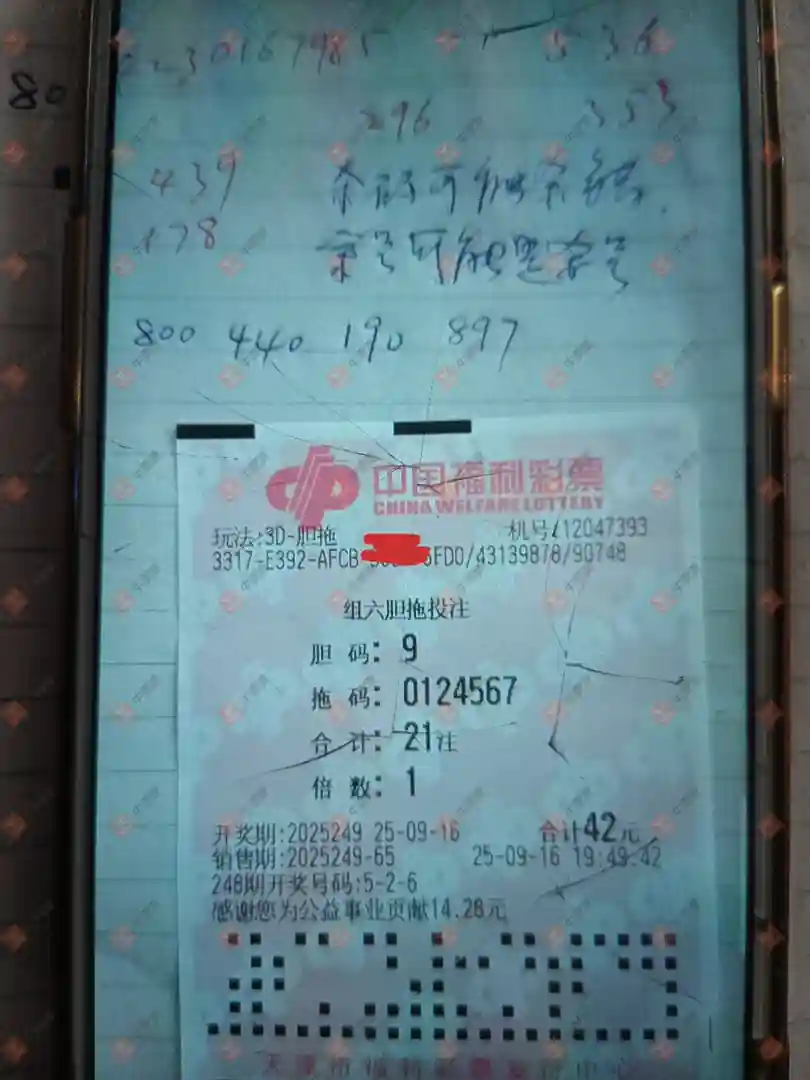 30167985 536
80
296 353
439
178
800 440 190 897
中国福利彩票
CHINA WELFARE LOTTERY
玩法:3D-胆拖 机号:12047393
3317-E392-AFCB- 5FD0/43139878/90748
组六胆拖投注
胆 码: 9
拖 码: 0124567
合 计: 21注
倍 数: 1
开奖期:2025249 25-09-16 合计42元
销售期:2025249-65 25-09-16 19:49:42
248期开奖号码:5-2-6
感谢您为公益事业贡献14.28元